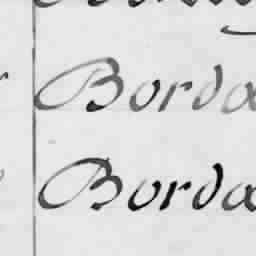 Borda
Borda